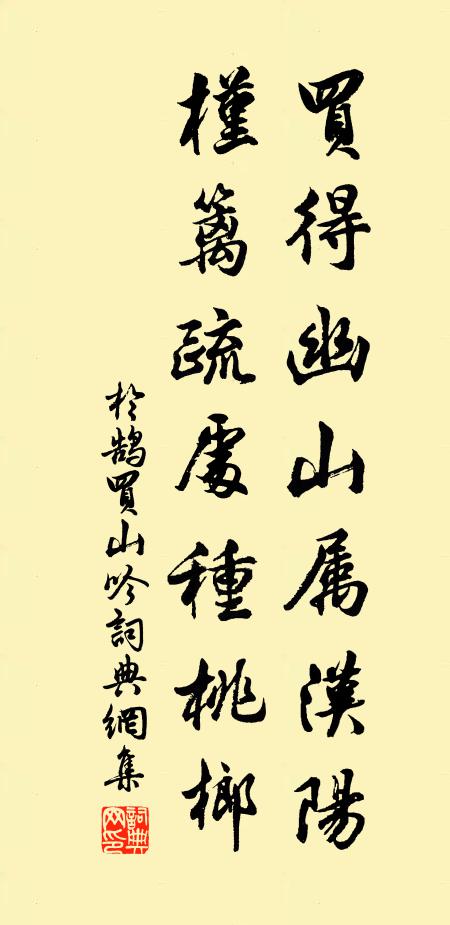 買得幽山属漢陽
槿篱疏處種桃榔
於鵠買山吟詞典網集
詞典网印